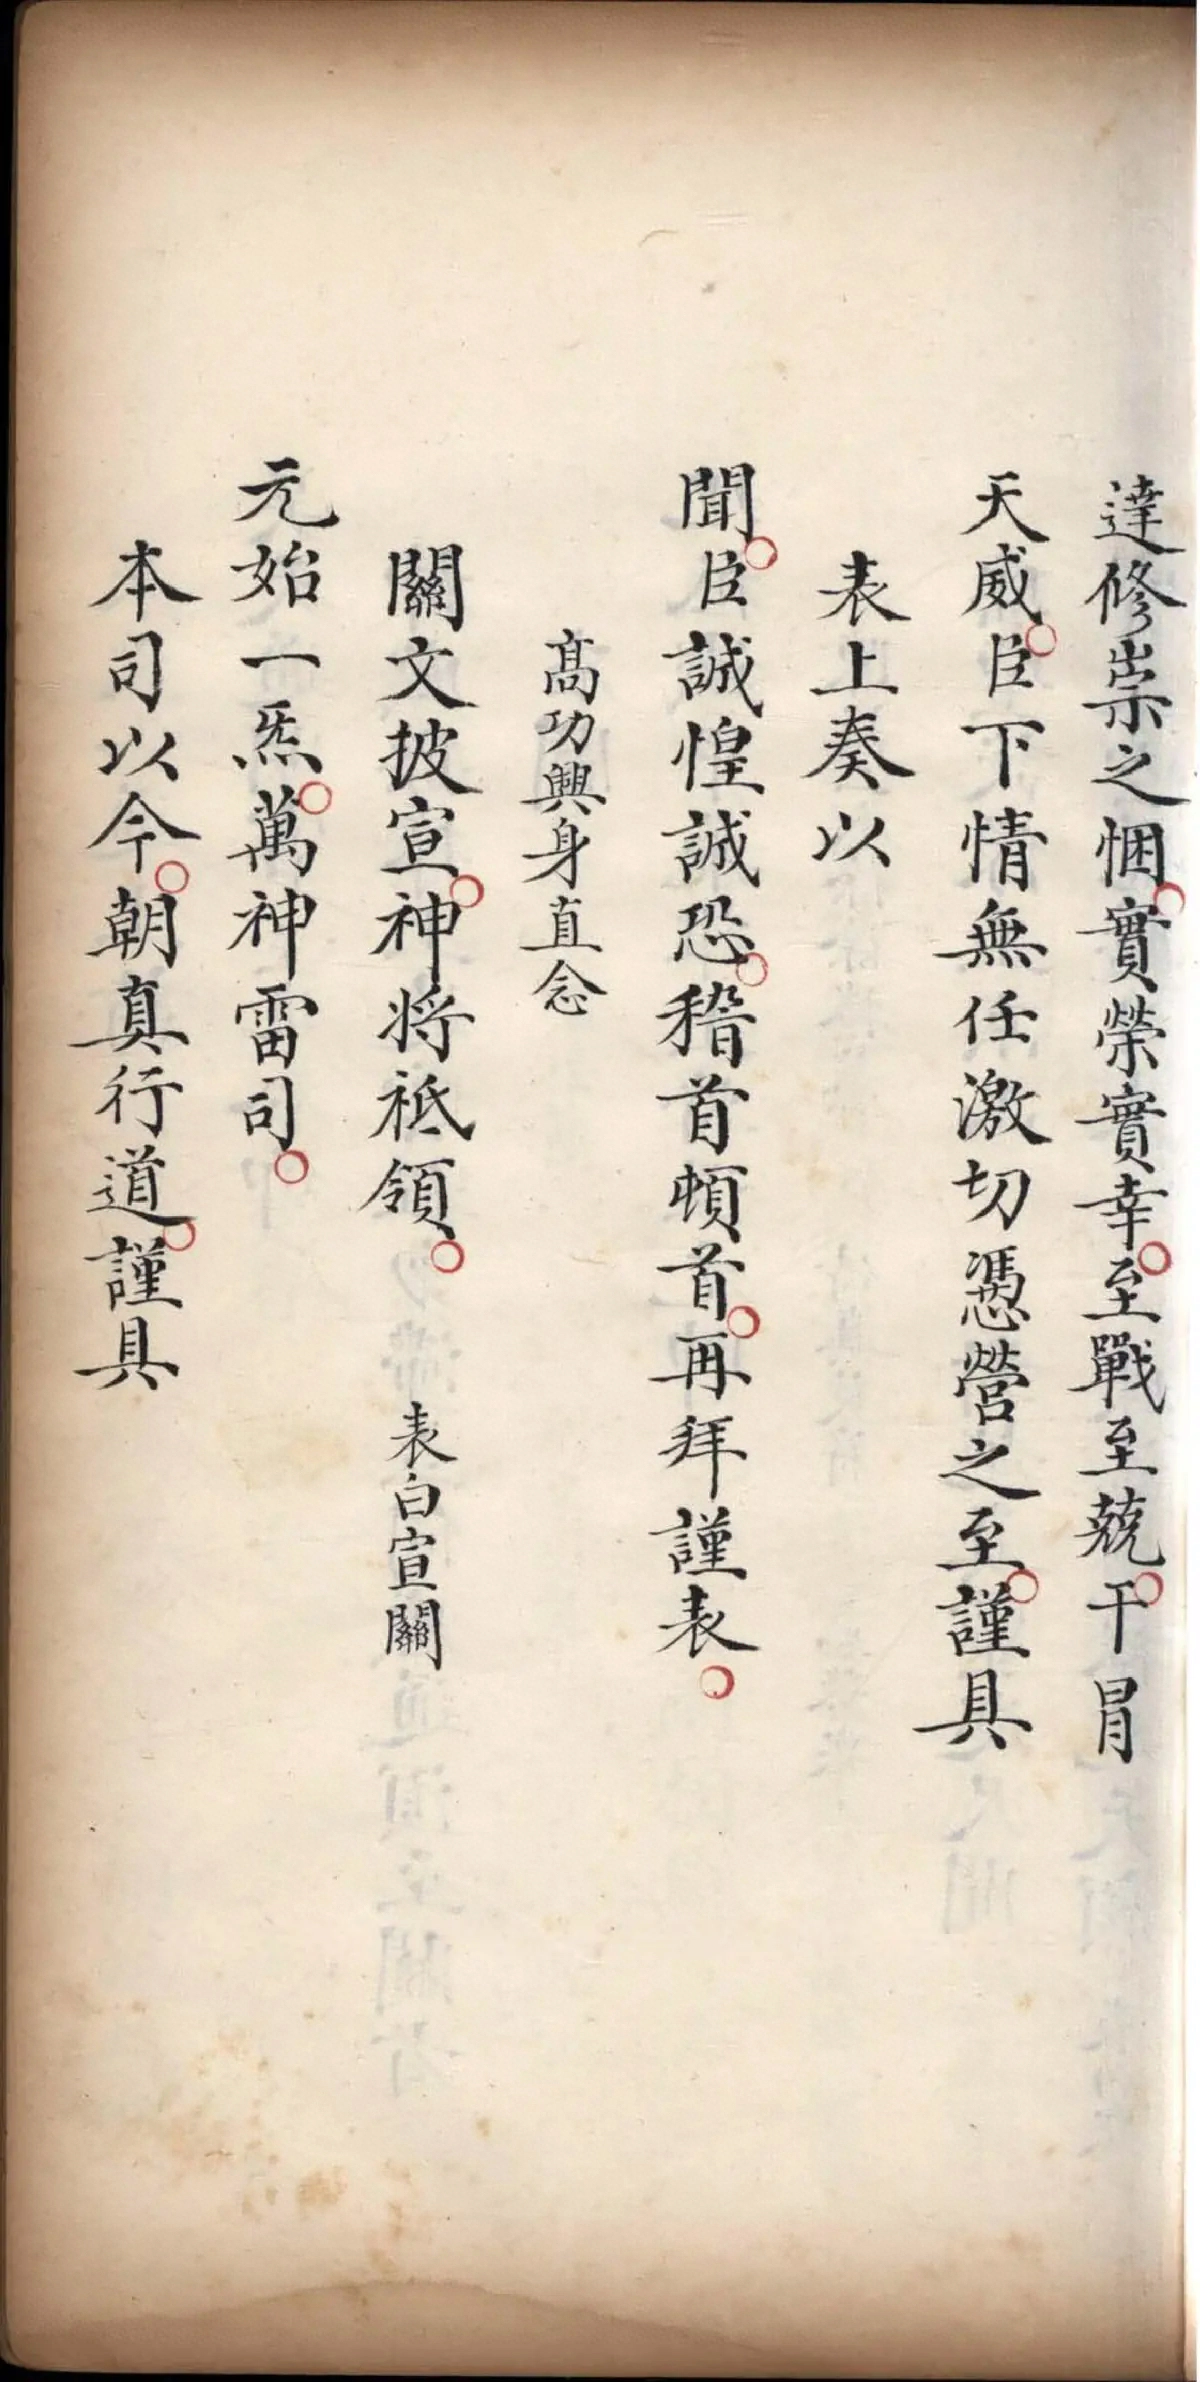 達修崇之悃○實榮實幸○至戰至兢○干冒
天威○臣下情無任激切憑營之至○謹具
表上奏以
聞○臣誠惶誠恐○稽首頓首○再拜謹表○
高功興身直念
關文披宣○神将祗領○ 表白宣關
元始一炁○萬神雷司○
本司以今○朝真行道○謹具